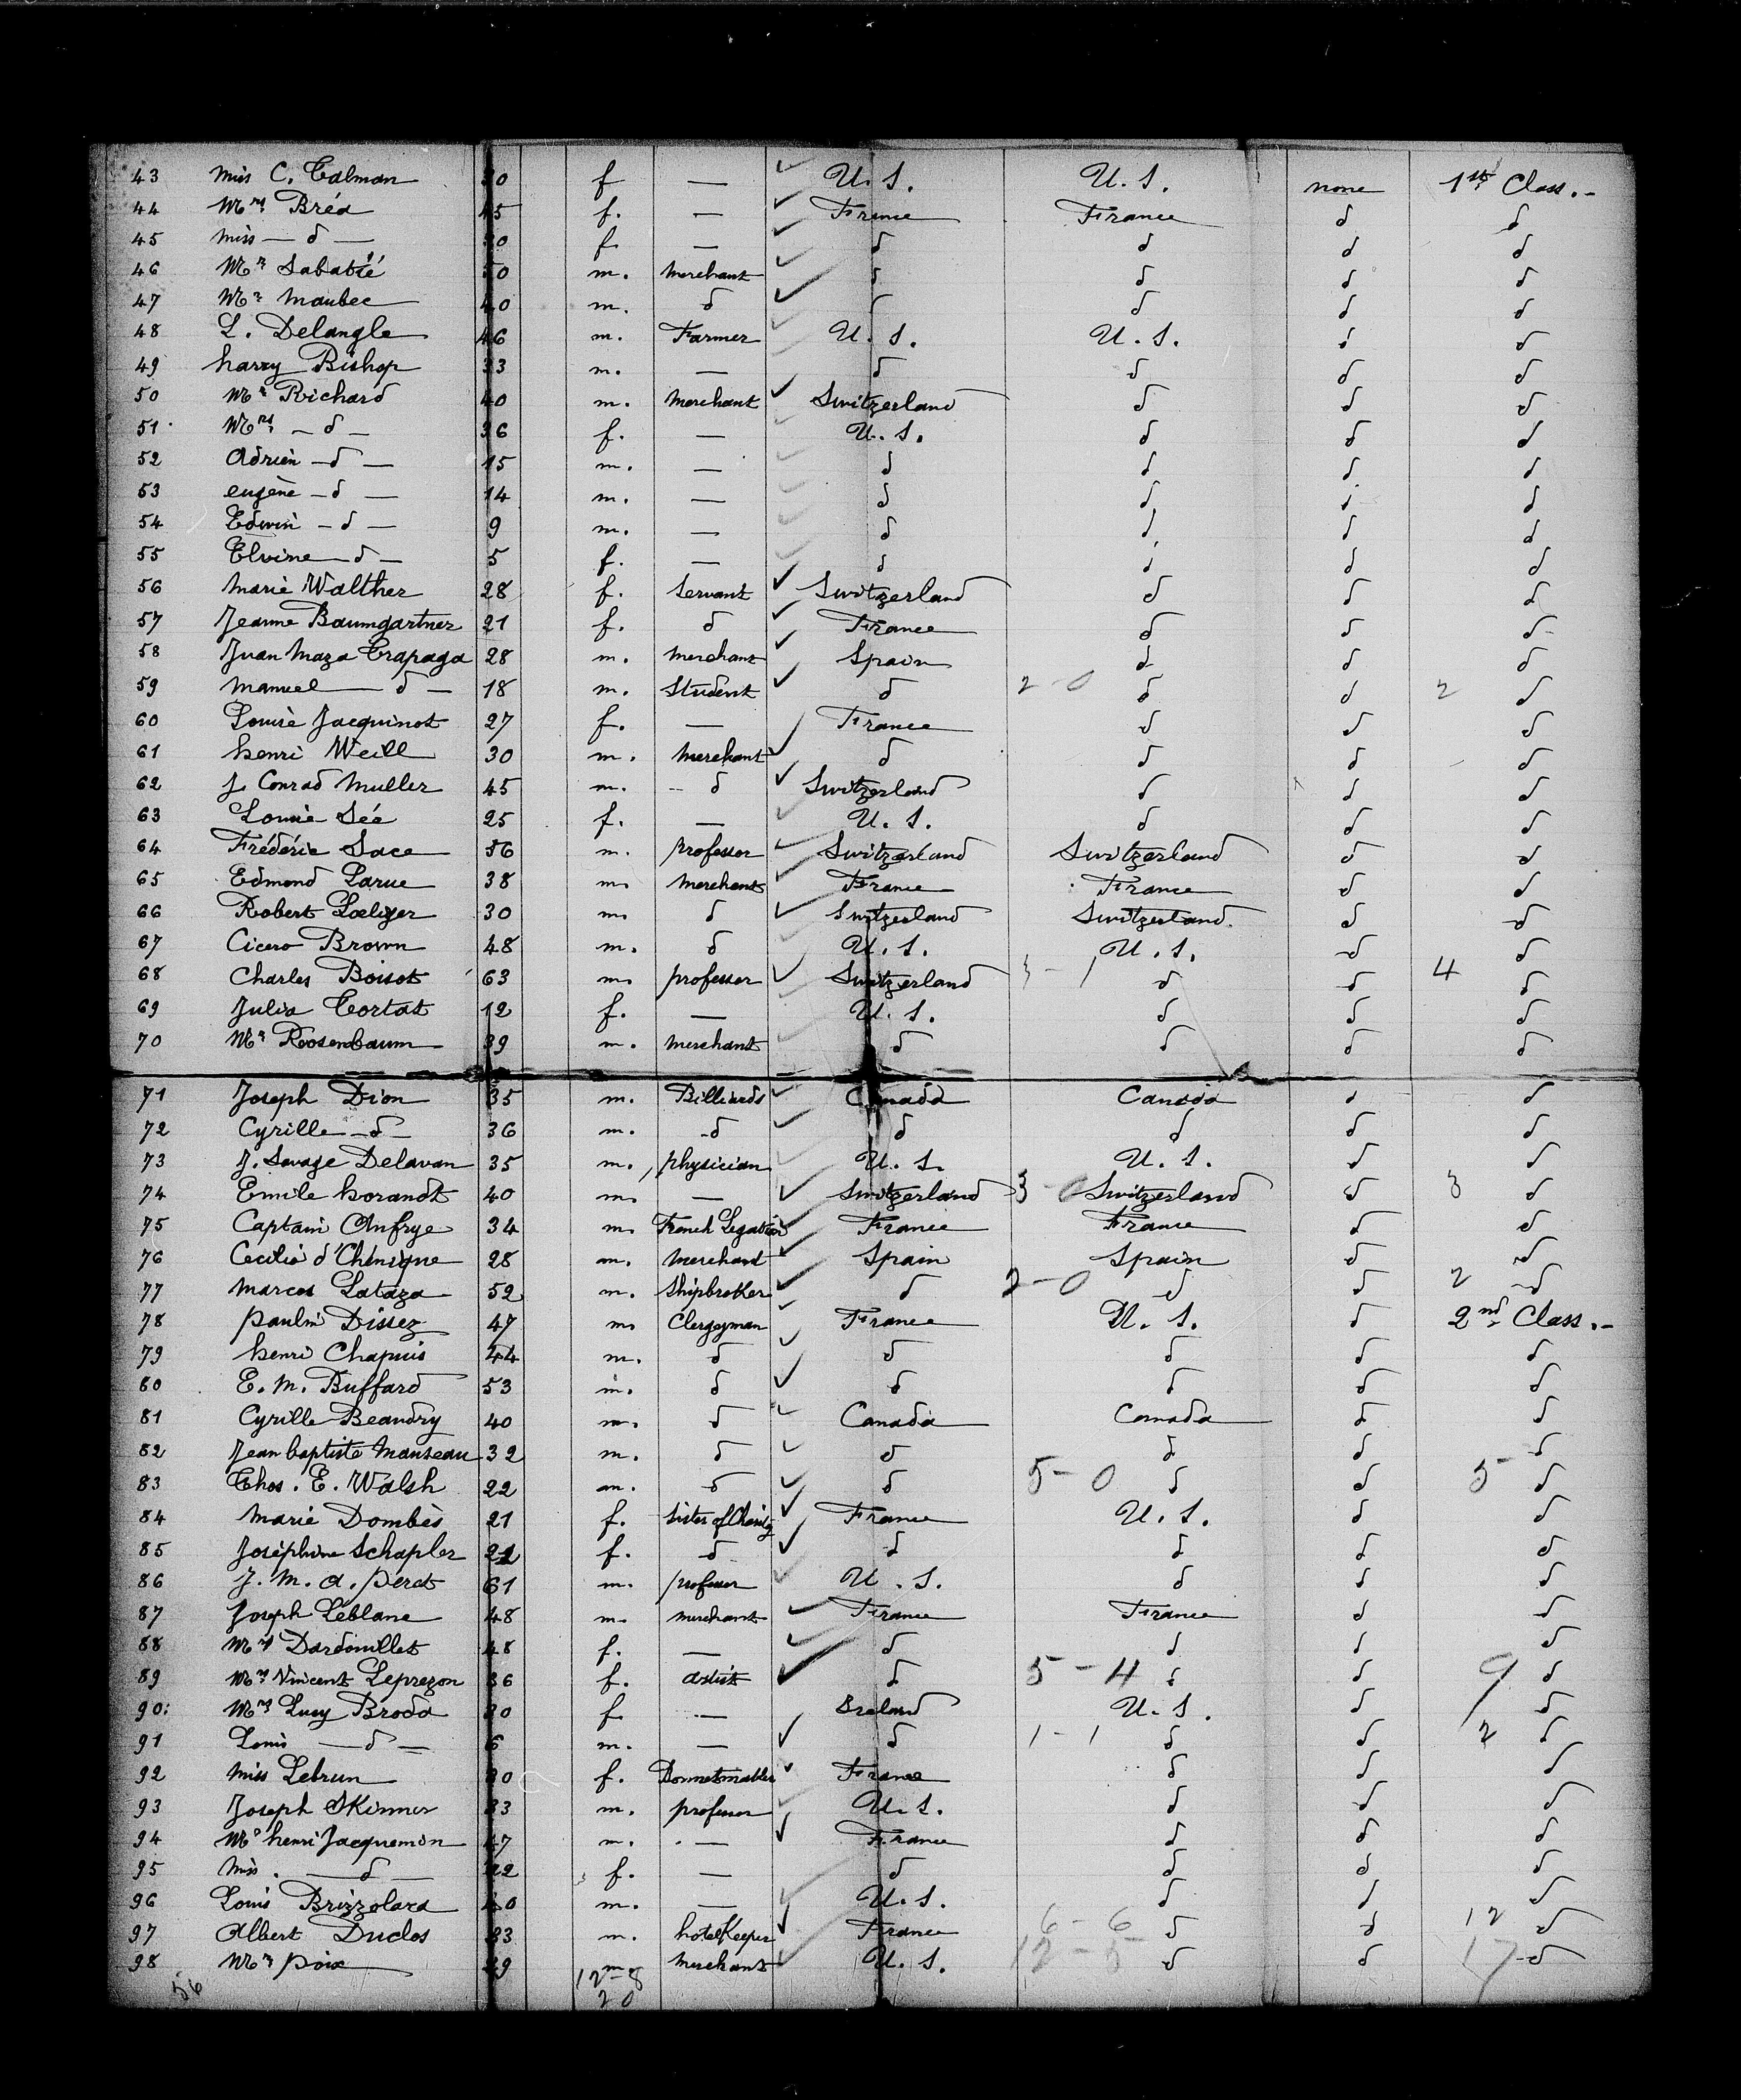 43 Miss C. Talman 30 f — U.S. U.S. none 1st Class.-
44 Mrs Bréa 45 f. — France France d d
45 Miss — d — 30 f. — d d d d
46 Mr Sabatié 50 m. Merchant d d d d
47 Mr Maubec 40 m. d d d d d
48 L. Delangle 46 m. Farmer U.S. U.S. d d
49 harry Bishop 33 m. — d d d d
50 Mr Richard 40 m. Merchant Switzerland d d d
51 Mrs — d — 36 f. — U.S. d d d
52 Adrien — d — 15 m. — d d d d
53 eugène — d — 14 m. — d d d d
54 Edwin — d — 9 m. — d d d d
55 Elvine — d — 5 f. — d d d d
56 Marie Walther 28 f. Servant Switzerland d d d
57 Jeanne Baumgartner 21 f. d France d d d
58 Juan Maza Trapaga 28 m. Merchant Spain d d d
59 Manuel — d — 18 m. Student d 2-0 d d 2 d
60 Louise Jacquinot 27 f. — France d d d
61 henri Weill 30 m. Merchant d d d d
62 J. Conrad Muller 45 m. d Switzerland d d d
63 Louise Sée 25 f. — U.S. d d d
64 Frédéric Sace 56 m. professor Switzerland Switzerland d d
65 Edmond Larue 38 m. Merchant France France d d
66 Robert Loeliger 30 m. d Switzerland Switzerland d d
67 Cicero Brown 48 m. d U.S. U.S. d d
68 Charles Boisot 63 m. professor Switzerland 3-1 d d 4 d
69 Julia Tortat 12 f. — U.S. d d d
70 Mr Roosenbaum 39 m. Merchant d d d d
71 Joseph Dion 35 m. Billiards Canada Canada d d
72 Cyrille — d — 36 m. d d d d d
73 J. Savage Delavan 35 m. physician U.S. U.S. d d
74 Emile horandt 40 m. — Switzerland 3-0 Switzerland d 3 d
75 Captain Anfrye 34 m. French Legation France France d d
76 Cecilio d'Chénique 28 m. Merchant Spain Spain d d
77 Marcos Lataza 52 m. Shipbroker d 2-0 d d 2 d
78 Paulin Dissez 47 m. Clergyman France U.S. d 2nd Class.-
79 henri Chapuis 44 m. d d d d d
80 E. M. Buffard 53 m. d d d d d
81 Cyrille Beaudry 40 m. d Canada Canada d d
82 Jean baptiste Manseau 32 m. d d d d d
83 Thos. E. Walsh 22 m. d d 5-0 d d 5 d
84 Marie Dombès 21 f. Sister of Charity France U.S. d d
85 Joséphine Schapler 22 f. d d d d d
86 J. M. A. Perct 61 m. professor U.S. d d d
87 Joseph Leblanc 48 m. Merchant France France d d
88 Mrs Dardouillet 48 f. — d d d d
89 Mrs Vincent Leprezon 36 f. artist d 5-4 d d 9 d
90. Mrs Lucy Broda 30 f — Ireland U.S. d d
91 Louis — d — 6 m. — d 1-1 d d 2 d
92 Miss Lebrun 30 f. Bonnetmaker France d d d
93 Joseph Skinner 33 m. professor U.S. d d d
94 Mr henri Jacquemin 47 m. — France d d d
95 Miss — d — 22 f. — d d d d
96 Louis Brizzolara 40 m. — U.S. d d d
97 Albert Duclos 33 m. hotelkeeper France 6-6 d d 12 d
98 Mr Poix 39 m. Merchant U.S. 12-5 d d 17 d
56 12-8
20